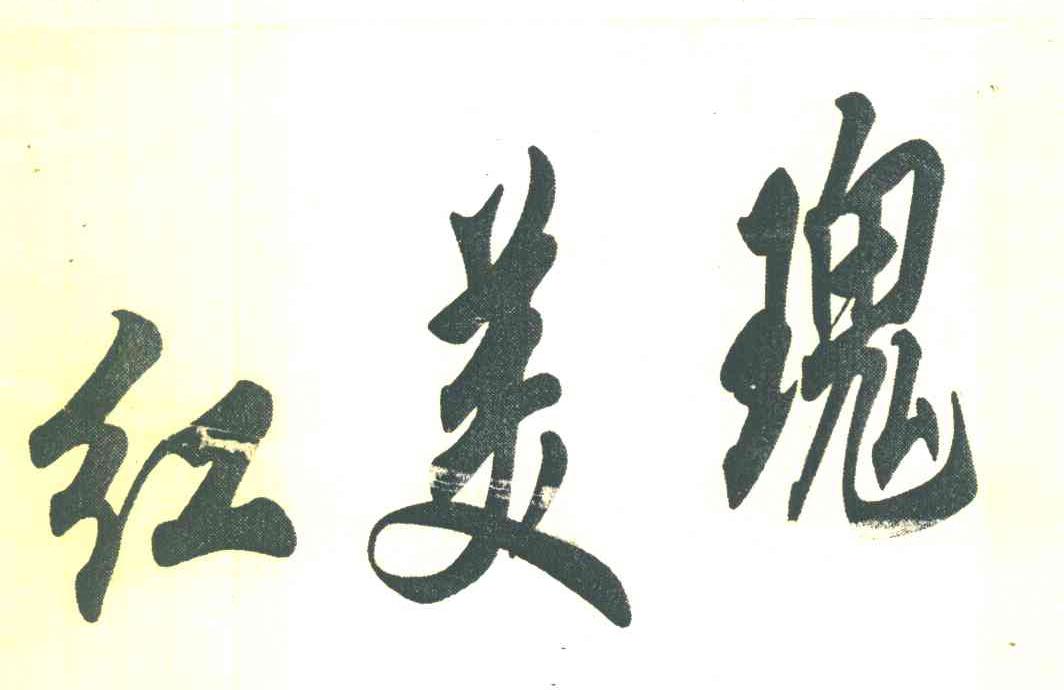 红美瑰